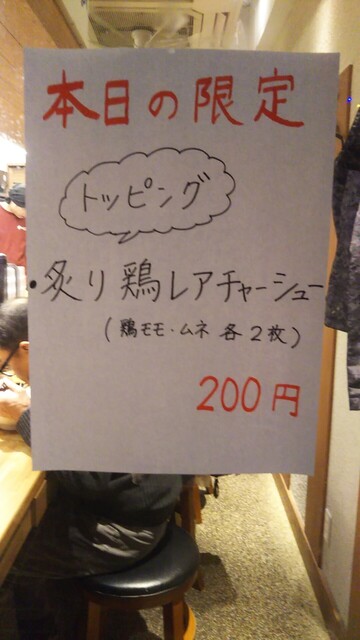 本日の限定
トッピング
・炙り鶏レアチャーシュー
(鶏モモ・ムネ 各2枚)
200円